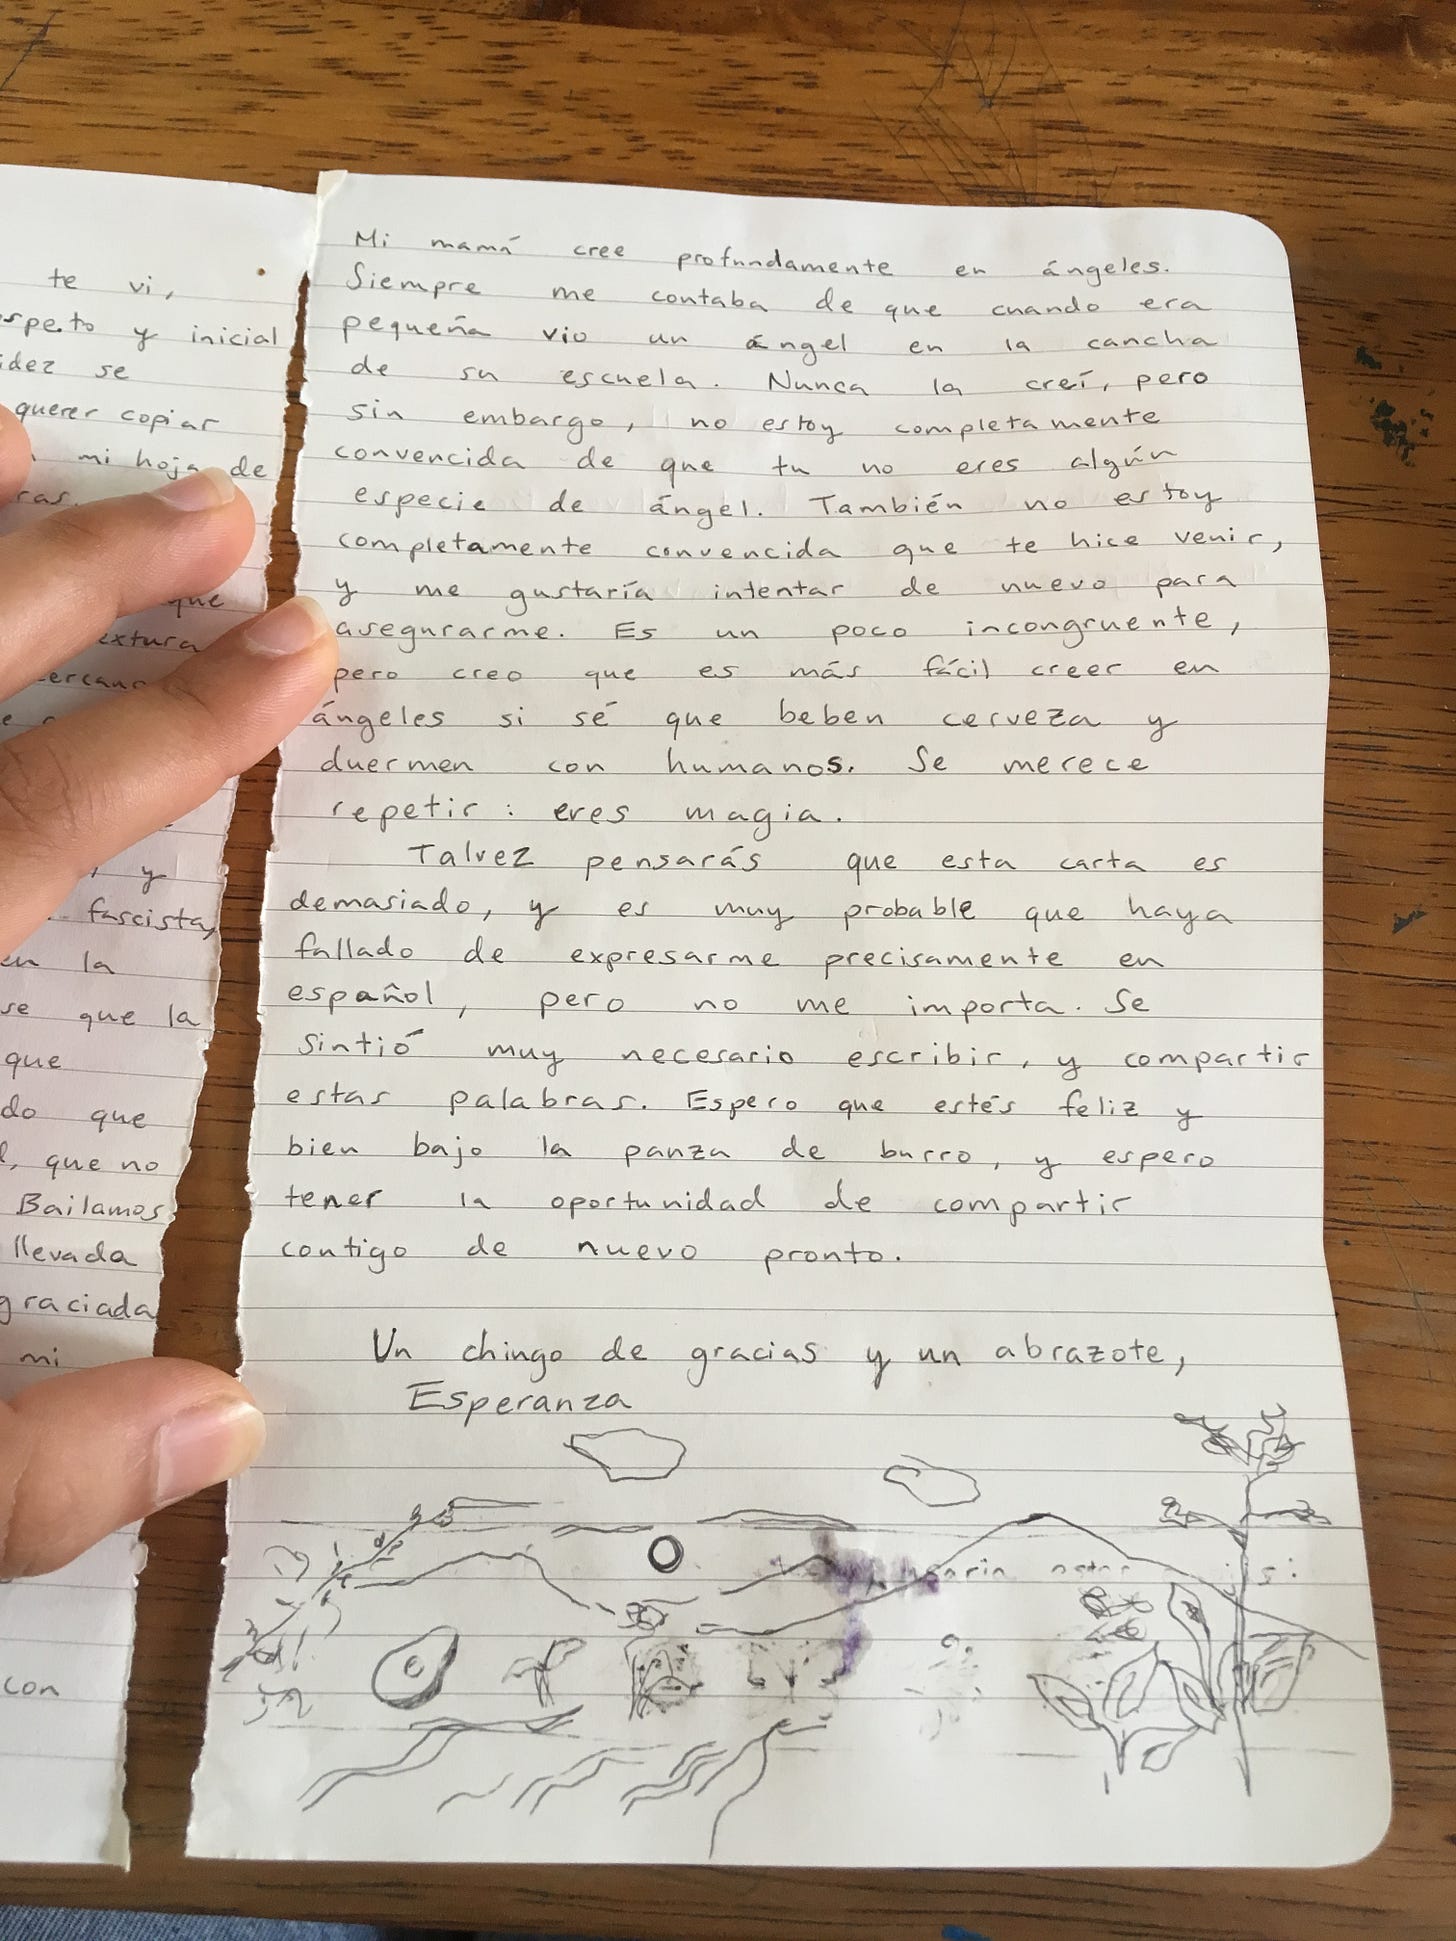 te vi,
y inicial
se
querer copiar
mi hoja de
que
y
fascista,
la
que la
que
que
que no
Bailamos
llevada
mi
con
Mi mamá cree profundamente en ángeles.
Siempre me contaba de que cuando era
pequeña vio un ángel en la cancha
de su escuela. Nunca la creí, pero
sin embargo, no estoy completamente
convencida de que tu no eres algún
especie de ángel. También no estoy
completamente convencida que te hice venir,
y me gustaría intentar de nuevo para
asegurarme. Es un poco incongruente,
pero creo que es más fácil creer en
ángeles si sé que beben cerveza y
duermen con humanos. Se merece
repetir: eres magia.
Talvez pensarás que esta carta es
demasiado, y es muy probable que haya
fallado de expresarme precisamente en
español, pero no me importa. Se
sintió muy necesario escribir, y compartir
estas palabras. Espero que estés feliz y
bien bajo la panza de burro, y espero
tener la oportunidad de compartir
contigo de nuevo pronto.
Un chingo de gracias y un abrazote,
Esperanza